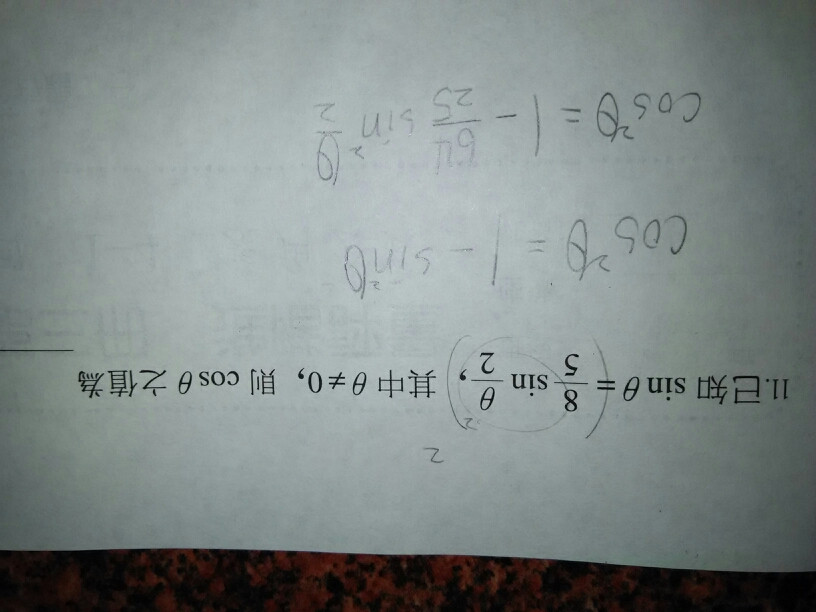 11.已知 sin θ = 8/5 sin θ/2, 其中 θ≠0, 則 cos θ 之值為
2
2
cos²θ = 1 - sin²θ
cos²θ = 1 - 64/25 sin² θ/2